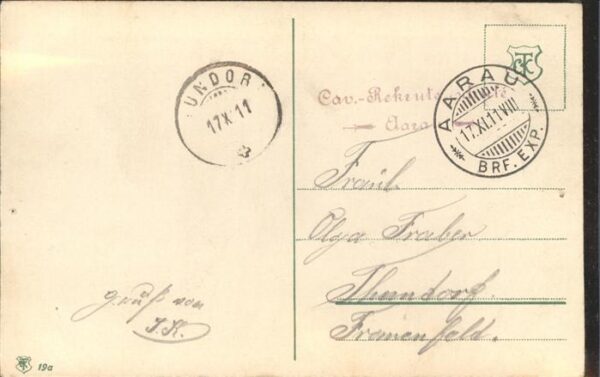 UNDOR
17.XI.11
Cav.-Rekruten
Aara
AARAU
17.XI.11 VIII
BRF. EXP.
Fräul.
Olga Fraber
Thundorf.
Frauenfeld.
gruß von
J. K.
19a